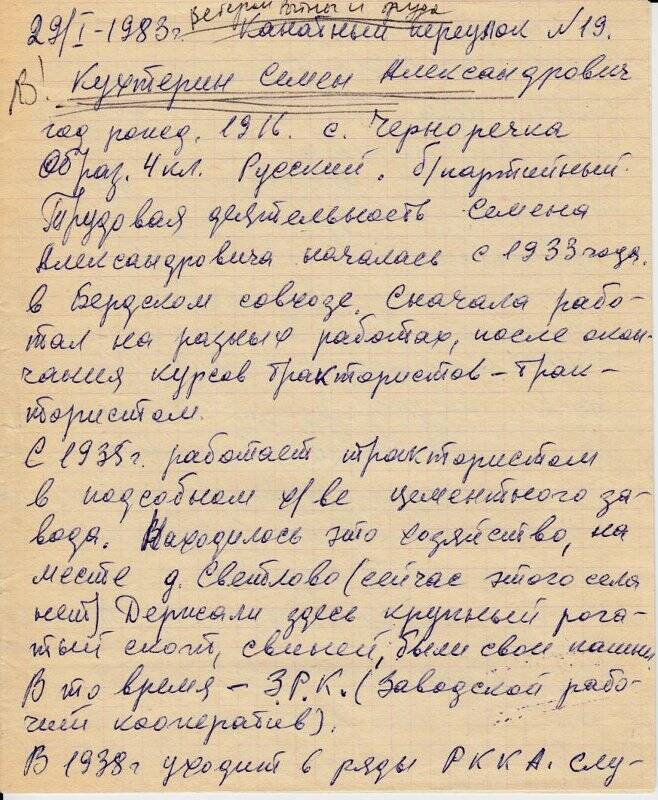 Ветеран войны и труда
29/I-1983г. Канатный переулок №19.
В! Кухтерин Семен Александрович
год рожд. 1916. с. Черноречка
Образ. 4 кл. Русский. б/партийный.
Трудовая деятельность Семена
Александровича началась с 1933 года.
в Бердском совхозе. Сначала рабо-
тал на разных работах, после окон-
чания курсов трактористов - трак-
тористом.
С 1935г. работает трактористом
в подсобном х/ве цементного за-
вода. Находилось это хозяйство, на
месте д. Светлово (сейчас этого села
нет) Держали здесь крупный рога-
тый скот, свиней, были свои пашни
В то время - З.Р.К. (Заводской рабо-
чий кооператив).
В 1938г уходит в ряды РККА. Слу-